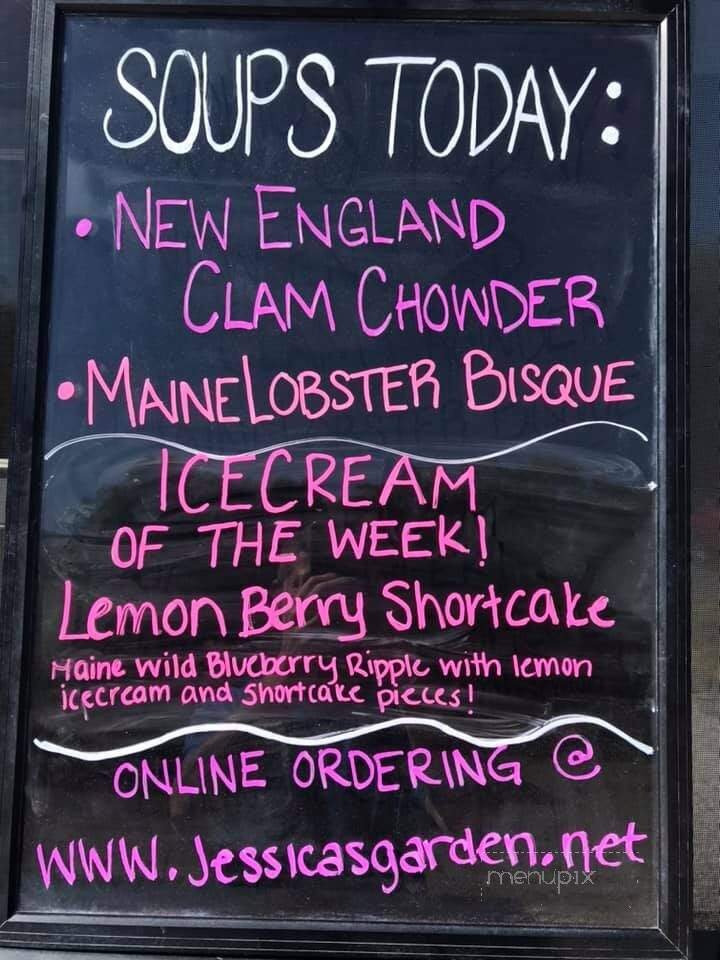 SOUPS TODAY:
• NEW ENGLAND
CLAM CHOWDER
• MAINE LOBSTER BISQUE
ICECREAM
OF THE WEEK!
Lemon Berry Shortcake
Maine wild Blueberry Ripple with lemon
icecream and Shortcake pieces!
ONLINE ORDERING @
WWW.Jessicasgarden.net
menupix